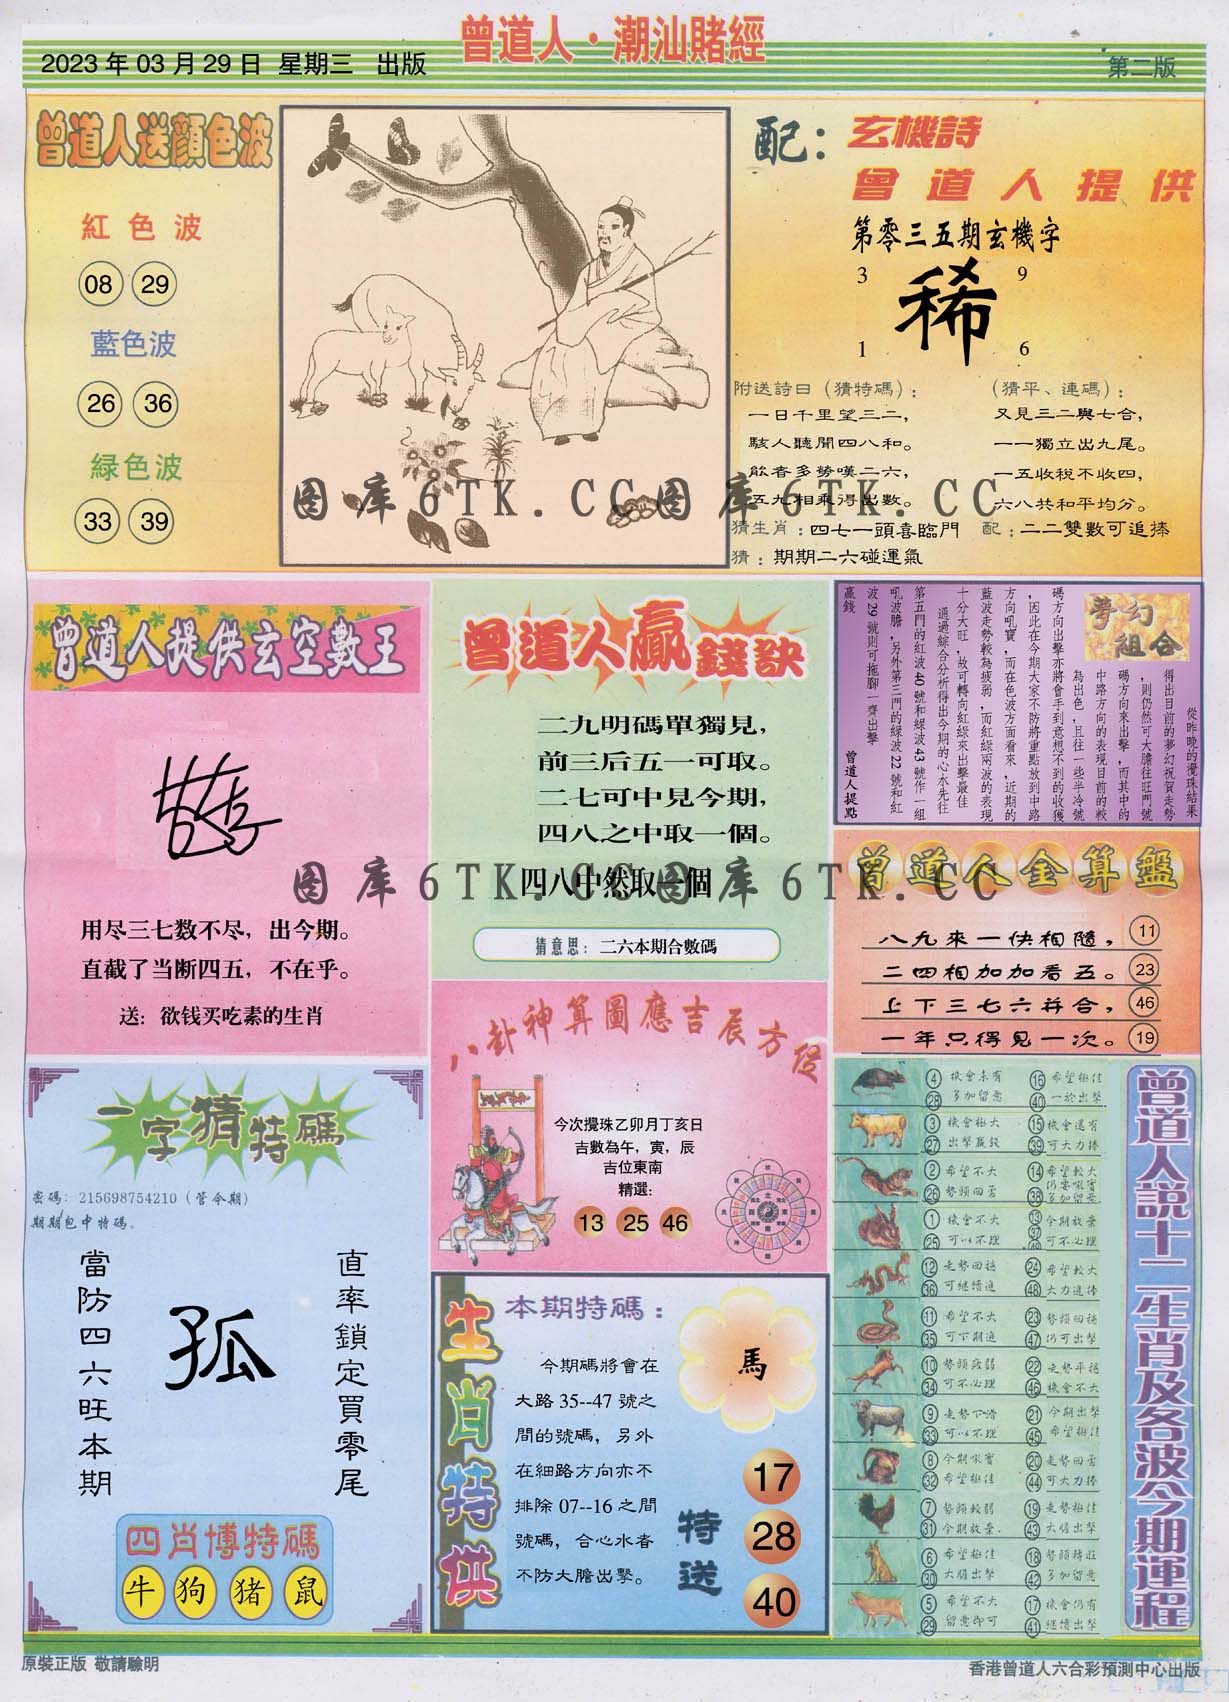 曾道人·潮汕賭經
2023 年 03 月 29 日 星期三 出版
第二版
曾道人送顔色波
紅色波
08 29
藍色波
26 36
緑色波
33 39
配：玄機詩
曾道人提供
第零三五期玄機字
3 9
稀
1 6
附送詩曰（猜特碼）：
一日千里望三二，
駭人聽聞四八和。
能者多勢嘆二六，
五九相乘得出數。
（猜平、連碼）：
又見三二與七合，
一一獨立出九尾。
一五收稅不收四，
六八共和平均分。
猜生肖：四七一頭喜臨門 配：二二雙數可追捧
猜：期期二六碰運氣
图库6TK.CC图库6TK.CC
曾道人提供玄空數王
用尽三七数不尽，出今期。
直截了当断四五，不在乎。
送：欲钱买吃素的生肖
曾道人贏錢訣
二九明碼單獨見，
前三后五一可取。
二七可中見今期，
四八之中取一個。
四八中然取一個
猜意思：二六本期合數碼
图库6TK.CC图库6TK.CC
夢幻組合
從昨晚的攪珠結果
得出目前的夢幻祝賀走勢
，則仍然可大膽往旺門號
碼方向來出擊，而其中的
中路方向的表現目前的較
為出色，且往一些半冷號
碼方向出擊亦將會手到意想不到的收獲
，因此在今期大家不防將重點放到中路
方向吼寶，而在色波方面看來，近期的
藍波走勢較為疲弱，而紅綠兩波的表現
十分大旺，故可轉向紅綠來出擊最佳
通過綜合分析得出今期的心水先往
第五門的紅波 40 號和綠波 43 號作一組
吼波膽，另外第三門的綠波 22 號和紅
波 29 號則可拖腳一齊出擊
贏錢
曾道人提點
曾道人金算盤
八九來一伏相隨， 11
二四相加加看五。 23
上下三七六并合， 46
一年只得見一次。 19
八卦神算圖應吉辰方位
今次攪珠乙卯月丁亥日
吉數為午，寅，辰
吉位東南
精選：
13 25 46
一字猜特碼
密碼：215698754210（管令期）
期期包中特碼。
直率鎖定買零尾
孤
當防四六旺本期
四肖博特碼
牛 狗 猪 鼠
生肖特供
本期特碼：
馬
今期碼將會在
大路 35--47 號之
間的號碼，另外
在細路方向亦不
排除 07--16 之間
號碼，合心水者
不防大膽出擊。
特送
17
28
40
曾道人說十二生肖及各波今期運程
4 機會未有 16 希望極佳
28 多加留意 40 一於出擊
3 機會極大 15 機會還有
27 出擊贏錢 39 可大力捧
2 希望不大 14 希望較大
26 勢頭回勇 38 仍要吼實 多加留意
1 機會不大 13 今期放棄
25 可以不理 37 49 可不必理
12 走勢回揚 24 希望較大
36 可繼續追 48 大力追捧
11 希望不大 23 勢頭回揚
35 可下期追 47 仍可出擊
10 勢頭疲弱 22 走勢平穩
34 可不必理 46 機會不大
9 走勢下滑 21 今期出擊
33 可以不理 45 希望極佳
8 今期吼實 20 走勢回勇
32 希望極佳 44 可大力捧
7 勢頭較弱 19 走勢極佳
31 今期放棄 43 大膽出擊
6 希望極佳 18 勢頭轉旺
30 大膽出擊 42 多加留意
5 希望不大 17 機會仍有
29 留意即可 41 繼續出擊
原裝正版 敬請驗明
香港曾道人六合彩預測中心出版